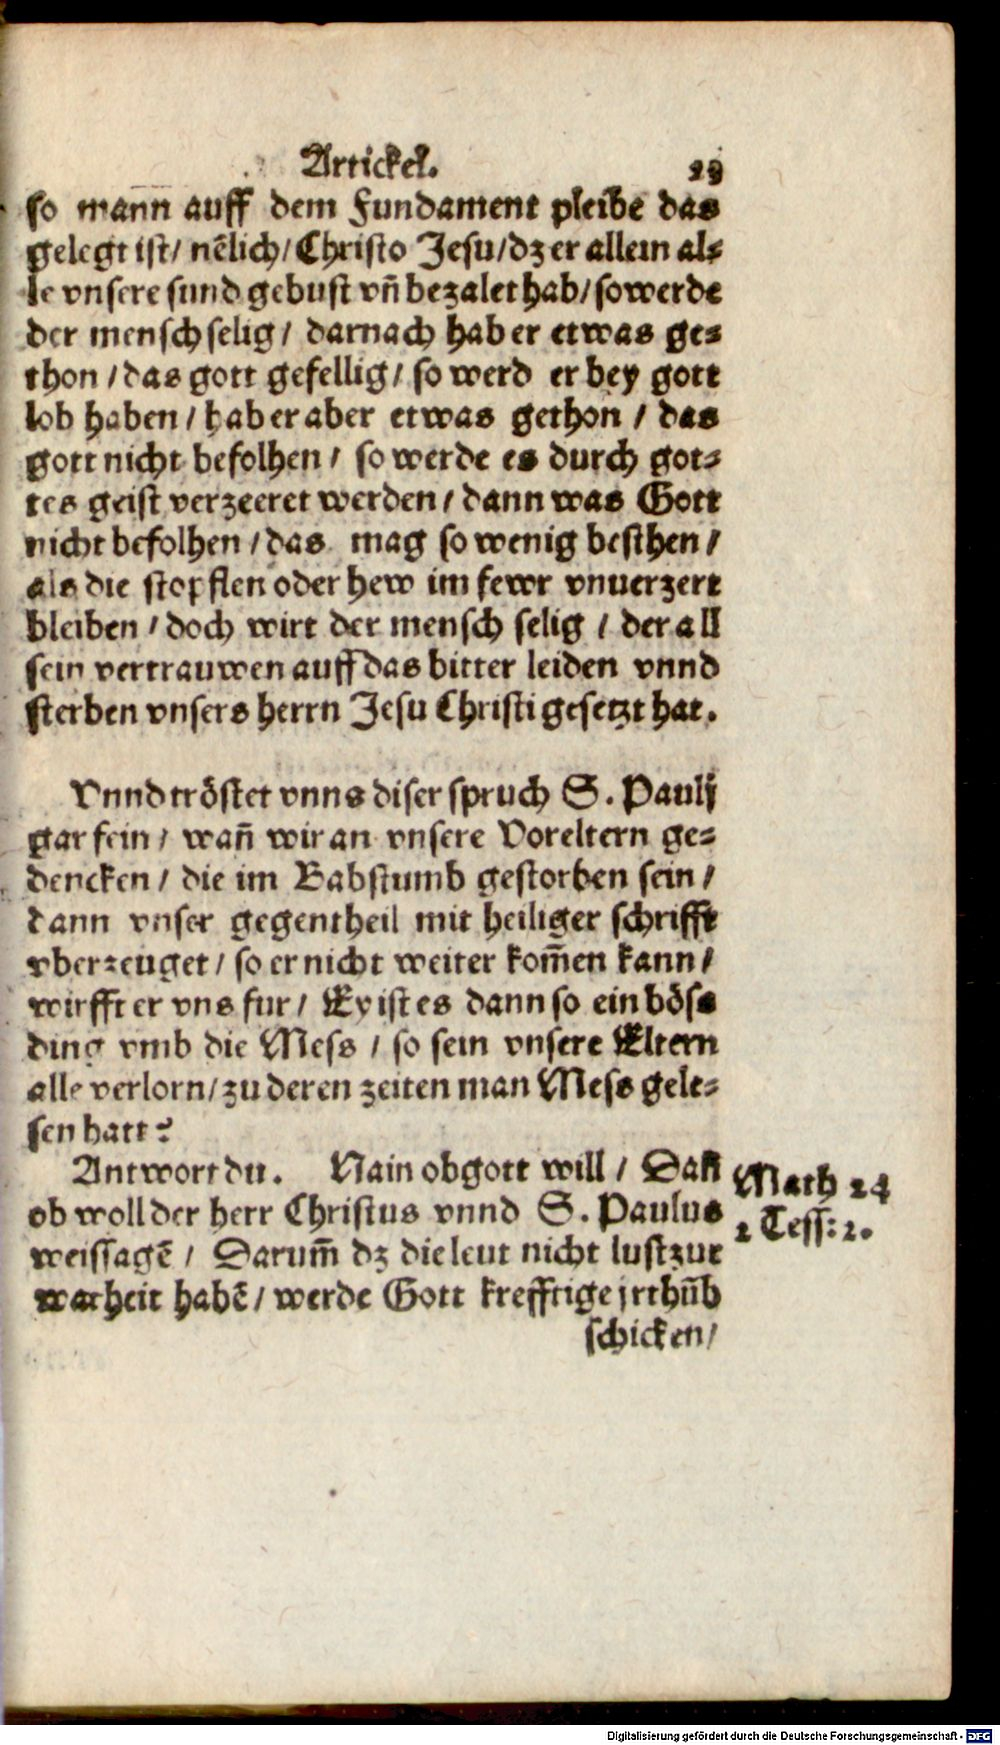 Artickel. 29
so mann auff dem Fundament pleibe das
gelegt ist/ nẽlich/ Christo Jesu/ dz er allein al⸗
le vnsere sund gebust vñ bezalet hab/ so werde
der mensch selig/ darnach hab er etwas ge⸗
thon/ das gott gefellig/ so werd er bey gott
lob haben/ hab er aber etwas gethon/ das
gott nicht befolhen/ so werde es durch got⸗
tes geist verzeeret werden/ dann was Gott
nicht befolhen/ das mag so wenig besthen/
als die stopflen oder hew im fewr vnuerzert
bleiben/ doch wirt der mensch selig/ der all
sein vertrauwen auff das bitter leiden vnnd
sterben vnsers herrn Jesu Christi gesetzt hat.
Vnnd tröstet vnns diser spruch S. Paulij
gar fein/ wañ wir an vnsere Voreltern ge⸗
dencken/ die im Babstumb gestorben sein/
dann vnser gegentheil mit heiliger schrifft
vberzeuget/ so er nicht weiter kom̃en kann/
wirfft er vns fur/ Ey ist es dann so ein böss
ding vmb die Mess/ so sein vnsere Eltern
alle verlorn/ zu deren zeiten man Mess gele⸗
sen hatt?
Antwort du. Nain ob gott will/ Dañ
ob woll der herr Christus vnnd S. Paulus
weissagẽ/ Darum̃ dz die leut nicht lust zur
warheit habẽ/ werde Gott krefftige jrthũb
schicken/
Math 24
2 Tess: 2.
Digitalisierung gefördert durch die Deutsche Forschungsgemeinschaft - DFG